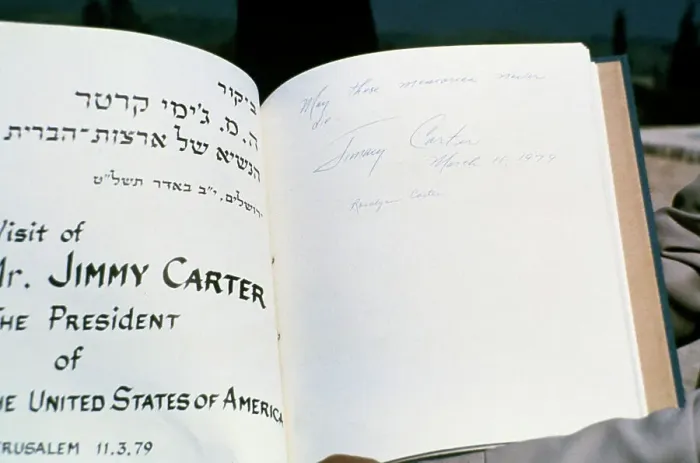 ביקור
ה. מ. ג'ימי קרטר
הנשיא של ארצות-הברית
ירושלים, י"ב באדר תשל"ט
Visit of
Mr. JIMMY CARTER
THE PRESIDENT
of
THE UNITED STATES OF AMERICA
JERUSALEM 11.3.79
May these memories never
die
Jimmy Carter
March 11, 1979
Rosalynn Carter